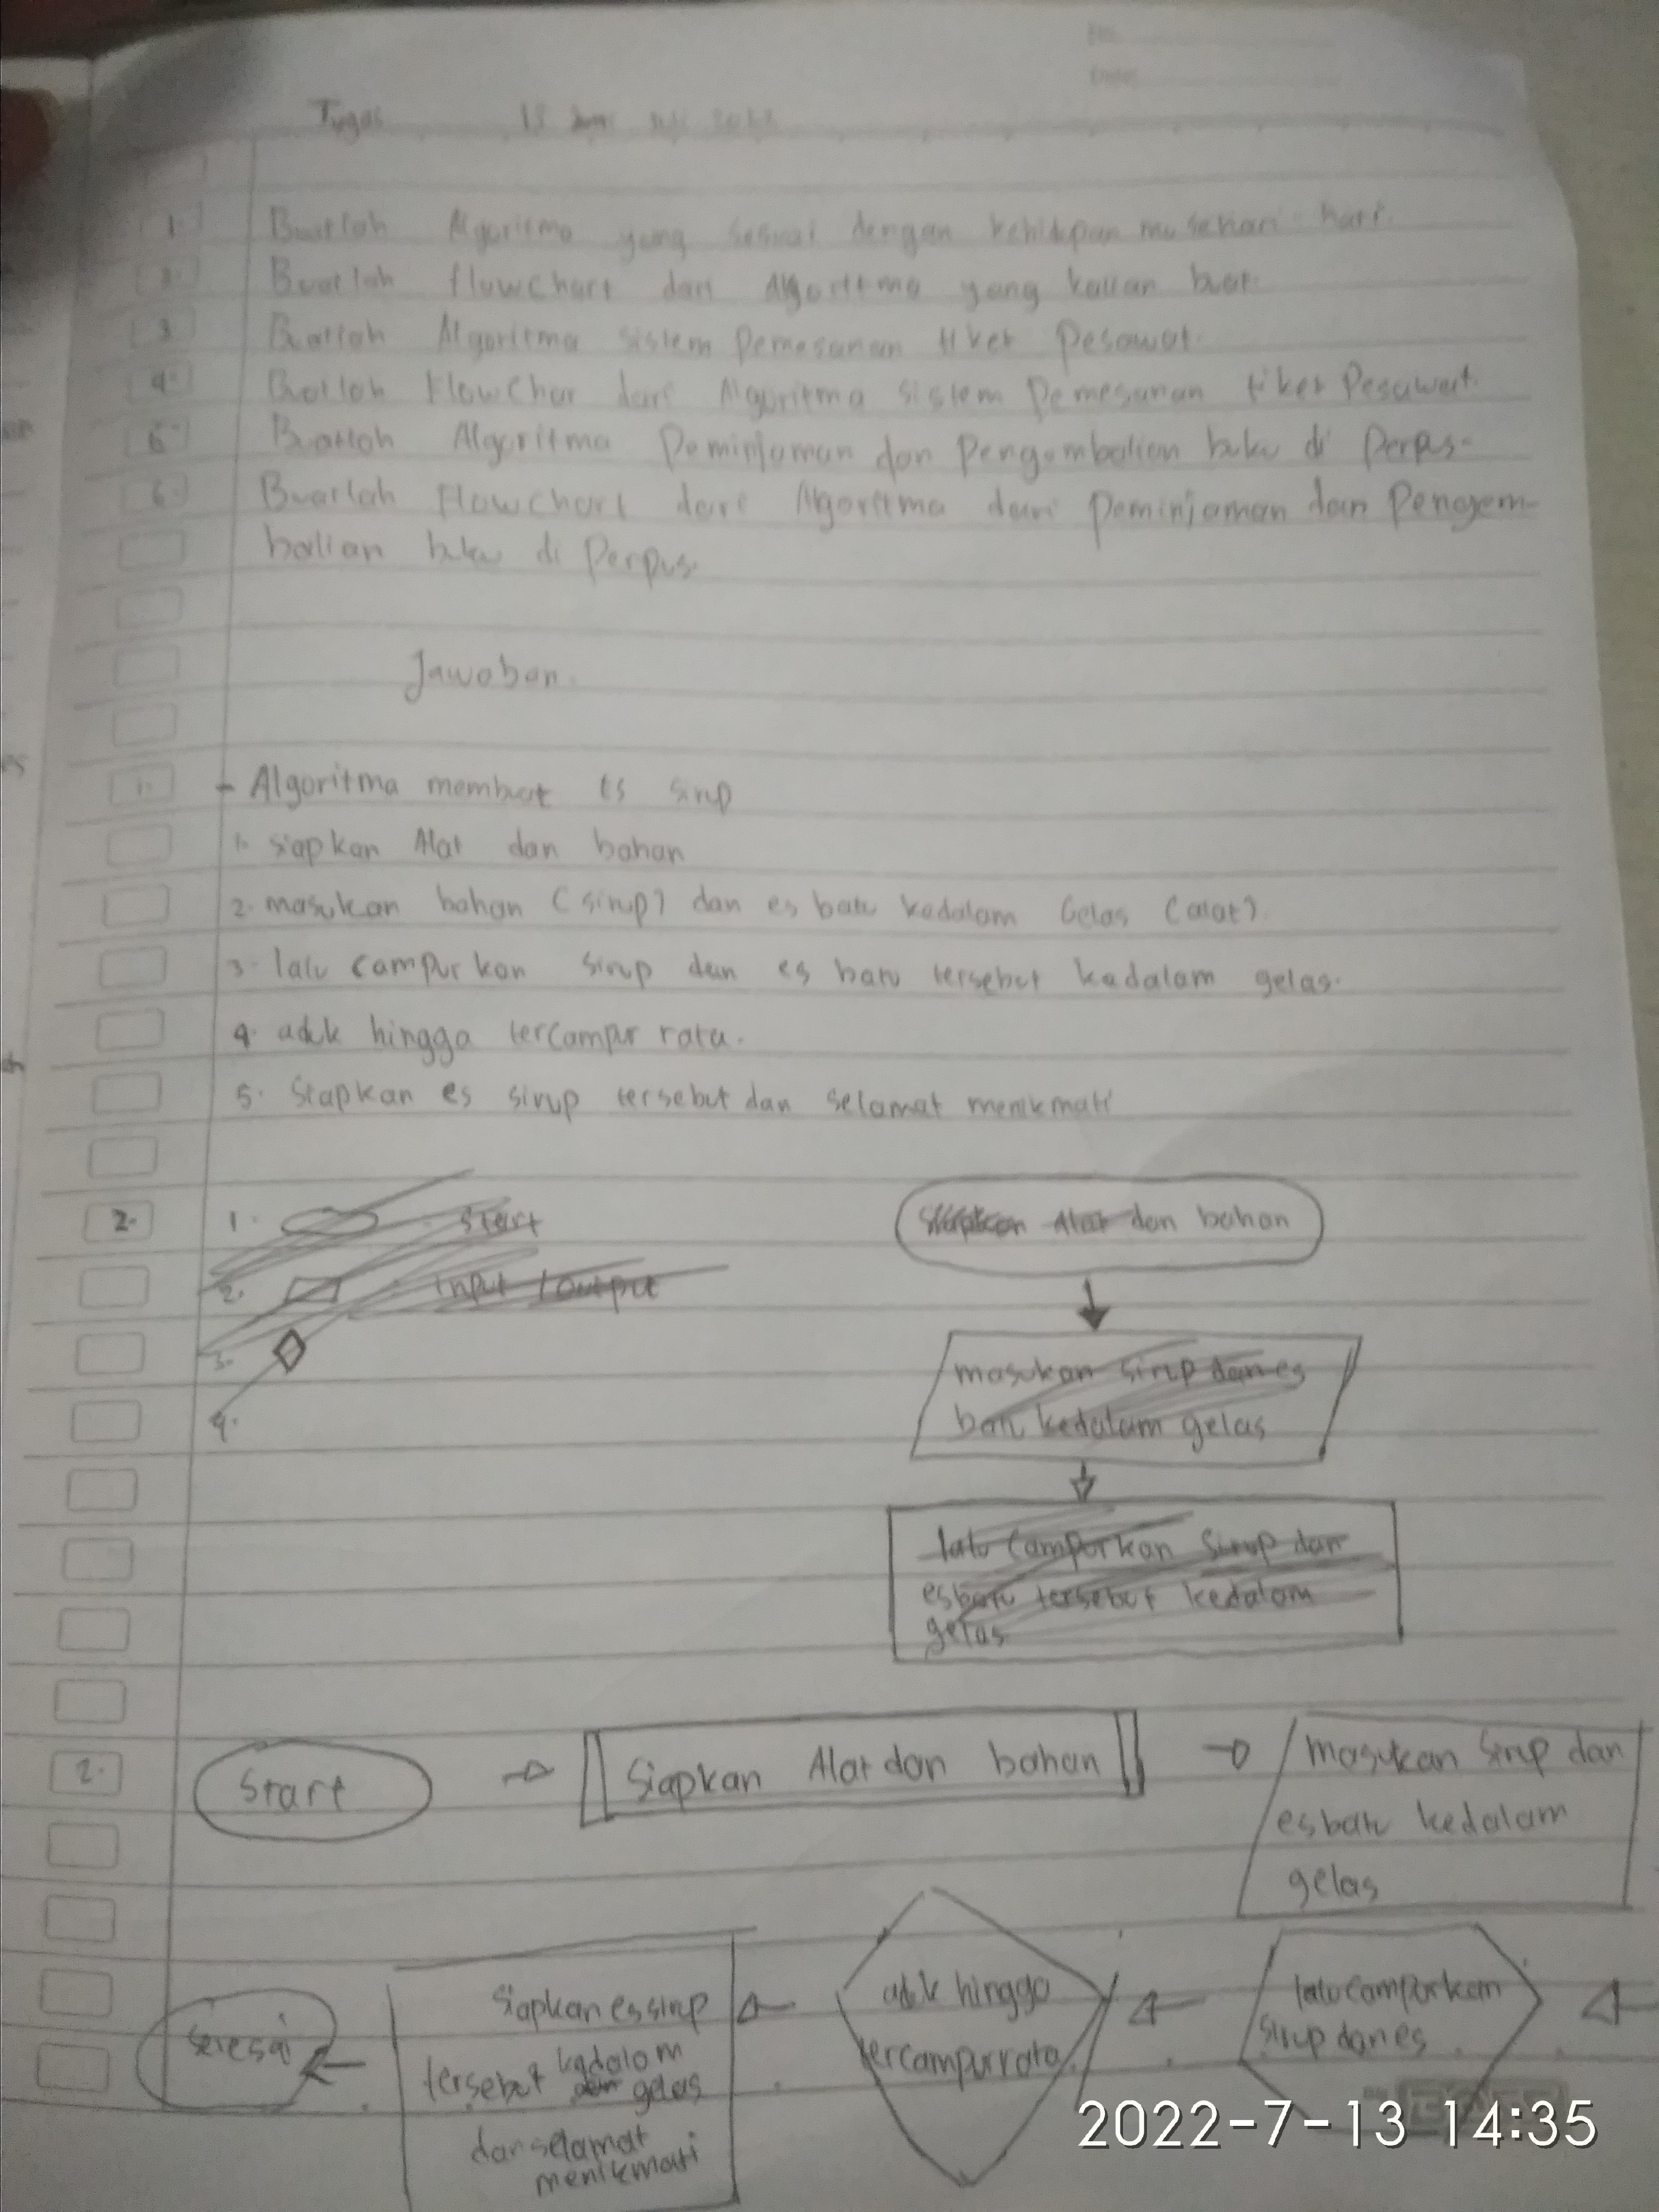 Tugas 13 Juli 2022
1. Buatlah Algoritma yang sesuai dengan kehidupan mu sehari-hari.
2. Buatlah flowchart dari Algoritma yang kalian buat.
3. Buatlah Algoritma sistem Pemesanan tiket Pesawat.
4. Buatlah FlowChar dari Algoritma sistem Pemesanan tiket Pesawat.
5. Buatlah Algoritma Peminjaman dan Pengembalian buku di Perpus.
6. Buatlah Flowchart dari Algoritma dari Peminjaman dan Pengem-
balian buku di Perpus.
Jawaban.
1. - Algoritma membuat Es sirup
1. siapkan Alat dan bahan
2. masukan bahan (sirup) dan es batu kedalam Gelas (alat).
3. lalu campurkan sirup dan es batu tersebut kedalam gelas.
4. aduk hingga tercampur rata.
5. Siapkan es sirup tersebut dan selamat menikmati
2. 1. Start
2. input / output
3.
4.
Siapkan Alat dan bahan
masukan sirup dan es
batu kedalam gelas
lalu Campurkan Sirup dan
es batu tersebut kedalam
gelas
2. Start
Siapkan Alat dan bahan
masukan Sirup dan
es batu kedalam
gelas
lalu campurkan
sirup dan es
aduk hingga
tercampur rata
Siapkan es sirup
tersebut kedalam
gelas
dan selamat
menikmati
selesai
2022-7-13 14:35